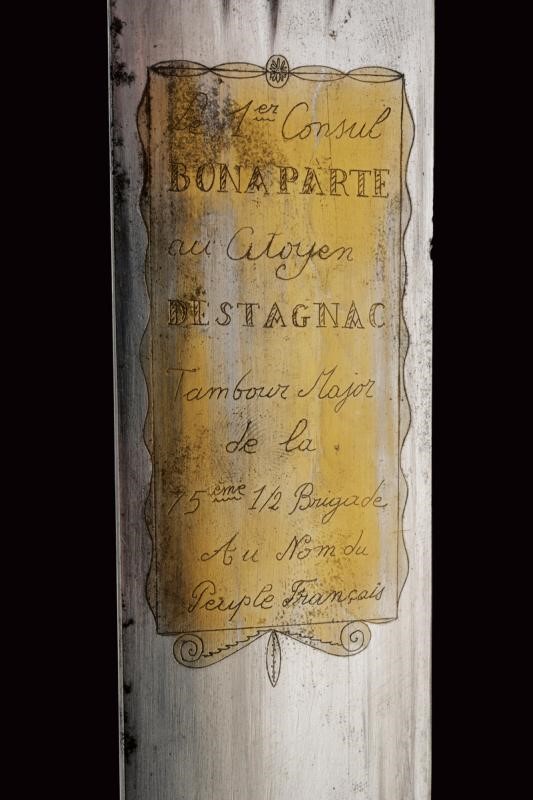 Le 1er Consul
BONAPARTE
au Citoyen
DESTAGNAC
Tambour Major
de la
75eme 1/2 Brigade
Au Nom du
Peuple Français